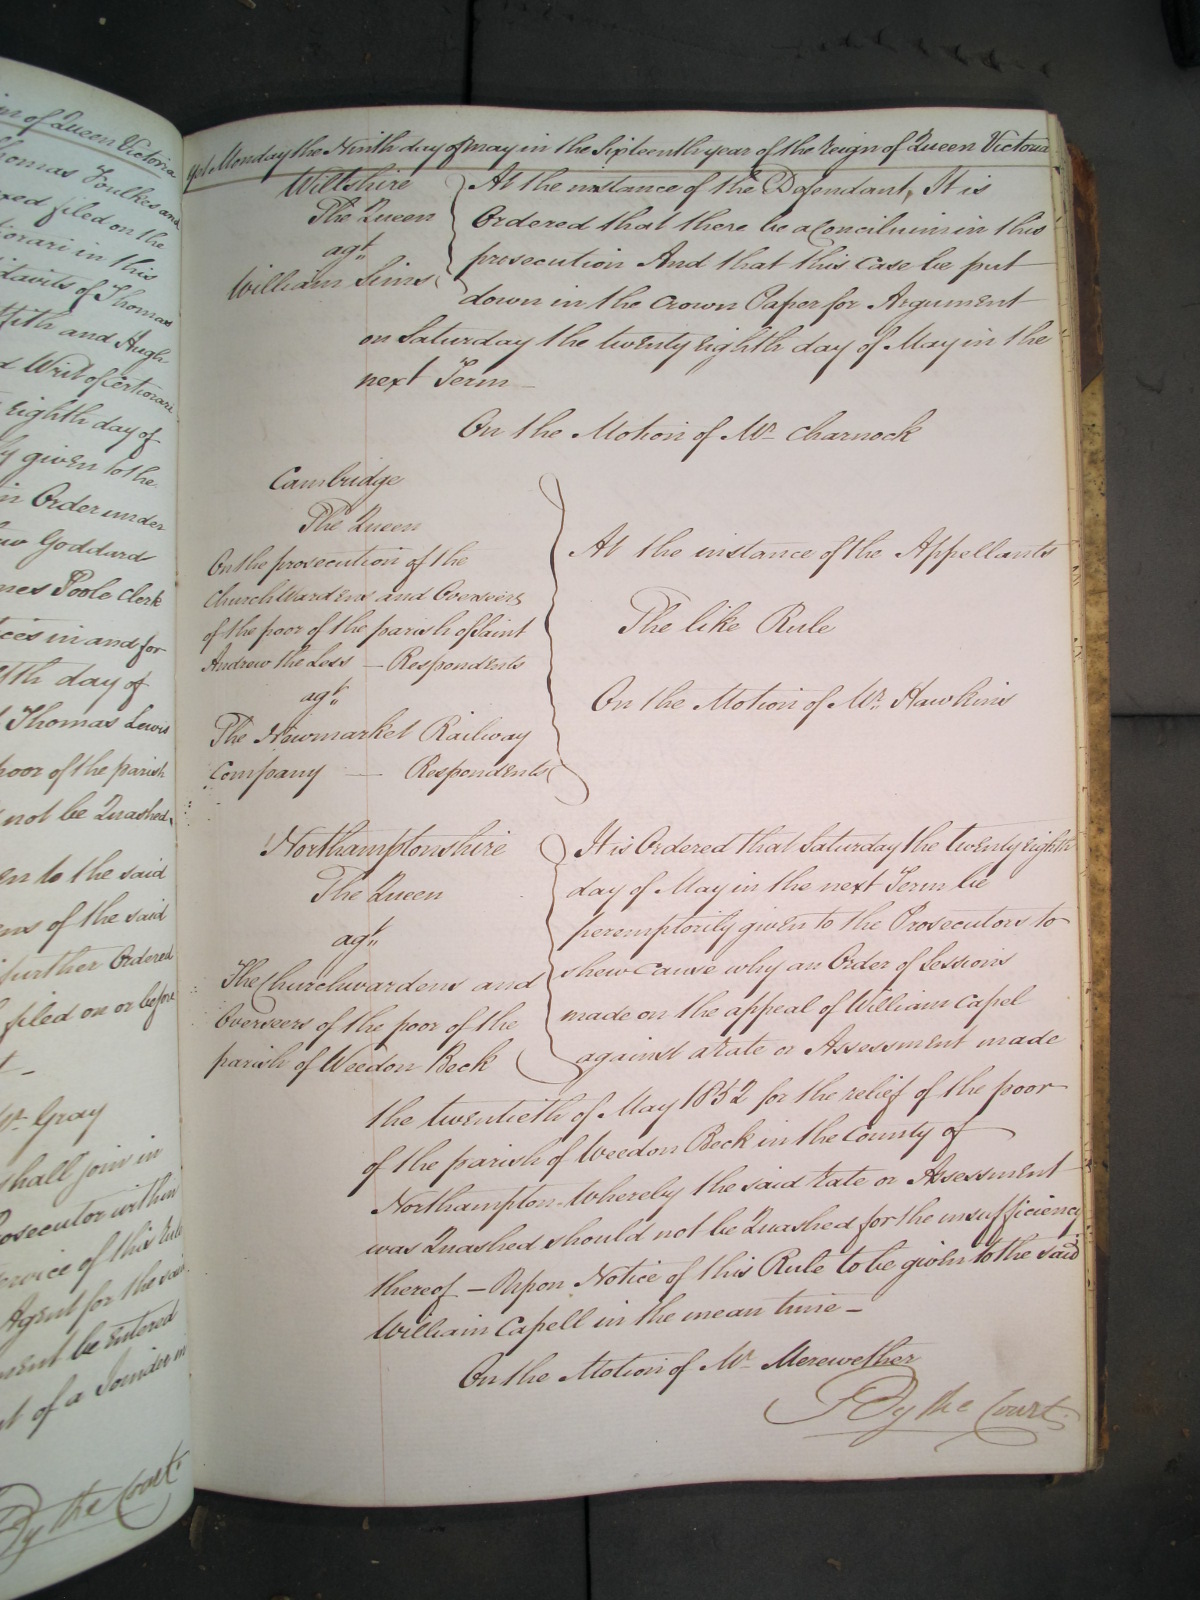 on of Queen Victoria
Thomas Foulkes and
filed on the
iorari in this
davits of Thomas
ith and Hugh
d Writ of Certiorari
Eighth day of
ly given to the
in Order under
Goddard
mes Poole Clerk
ces in and for
day of
Thomas Lewis
poor of the parish
not be Quashed
en to the said
ens of the said
further Ordered
filed on or before
Mr. Gray
shall join in
Prosecutor within
Service of this Rule
Agent for the said
ment be entered
t of a Joinder in
By the Court.
Yet Monday the Ninth day of May in the Sixteenth year of the reign of Queen Victoria
Wiltshire
The Queen
agt.
William Sims
At the instance of the Defendant, It is
Ordered that there be a Concilium in this
prosecution And that this case be put
down in the Crown Paper for Argument
on Saturday the twenty eighth day of May in the
next Term —
On the Motion of Mr. Charnock
Cambridge
The Queen
On the prosecution of the
Churchwardens and Overseers
of the poor of the parish of Saint
Andrew the Less — Respondents
agt.
The Newmarket Railway
Company — Respondents
At the instance of the Appellants
The like Rule
On the Motion of Mr. Hawkins
Northamptonshire
The Queen
agt.
The Churchwardens and
Overseers of the poor of the
parish of Weedon Beck
It is Ordered that Saturday the twenty eighth
day of May in the next Term be
peremptorily given to the Prosecutors to
shew cause why an Order of Sessions
made on the appeal of William Capel
against a Rate or Assessment made
the twentieth of May 1852 for the relief of the poor
of the parish of Weedon Beck in the County of
Northampton Whereby the said Rate or Assessment
was Quashed should not be Quashed for the insufficiency
thereof — Upon Notice of this Rule to be given to the said
William Capell in the mean time —
On the Motion of Mr. Merewether
By the Court.